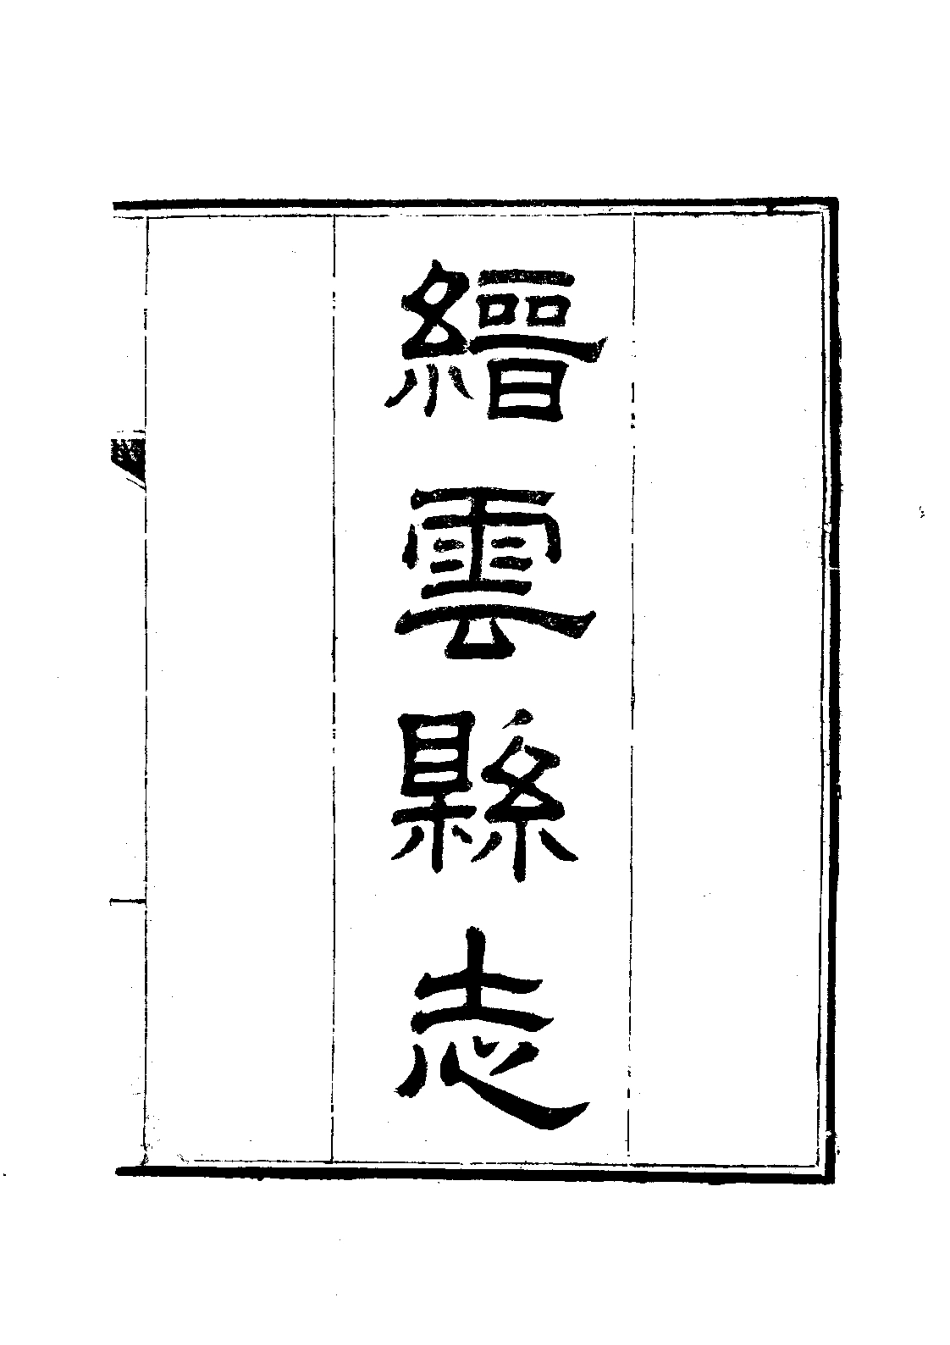 縉雲縣志